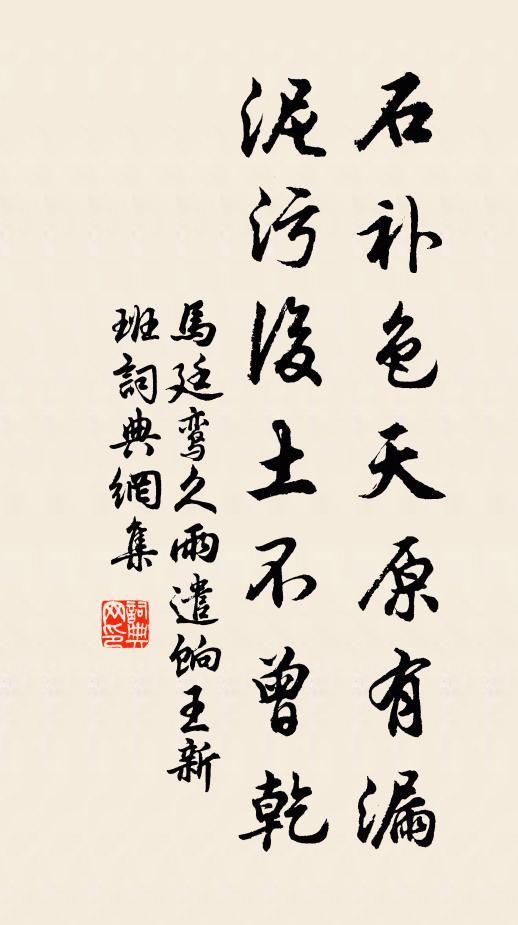 石补色天原有漏
泥污後土不曾乾
馬廷鸾久雨遣餉王新
班詞典網集
詞典
网印